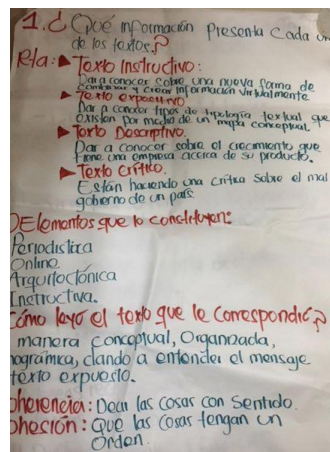 1. ¿Qué información Presenta Cada un
de los textos?
Rta: ▶ Texto Instructivo:
Dar a conocer sobre una nueva forma de
combinar y crear información virtualmente.
▶ Texto expositivo
Dar a conocer tipos de tipología textual que
existen por medio de un mapa conceptual.
▶ Texto Descriptivo.
Dar a conocer sobre el crecimiento que
tiene una empresa acerca de su producto.
▶ Texto Crítico.
Están haciendo una crítica sobre el mal
gobierno de un país.
Elementos que lo constituyen:
Periodística
Online
Arquitectónica
Instructiva.
Cómo leyó el texto que le correspondió?
manera conceptual, Organizada,
nogramica, dando a entender el mensaje
texto expuesto.
oherencia: Decir las cosas con Sentido.
ohesión: Que las cosas tengan un
Orden.